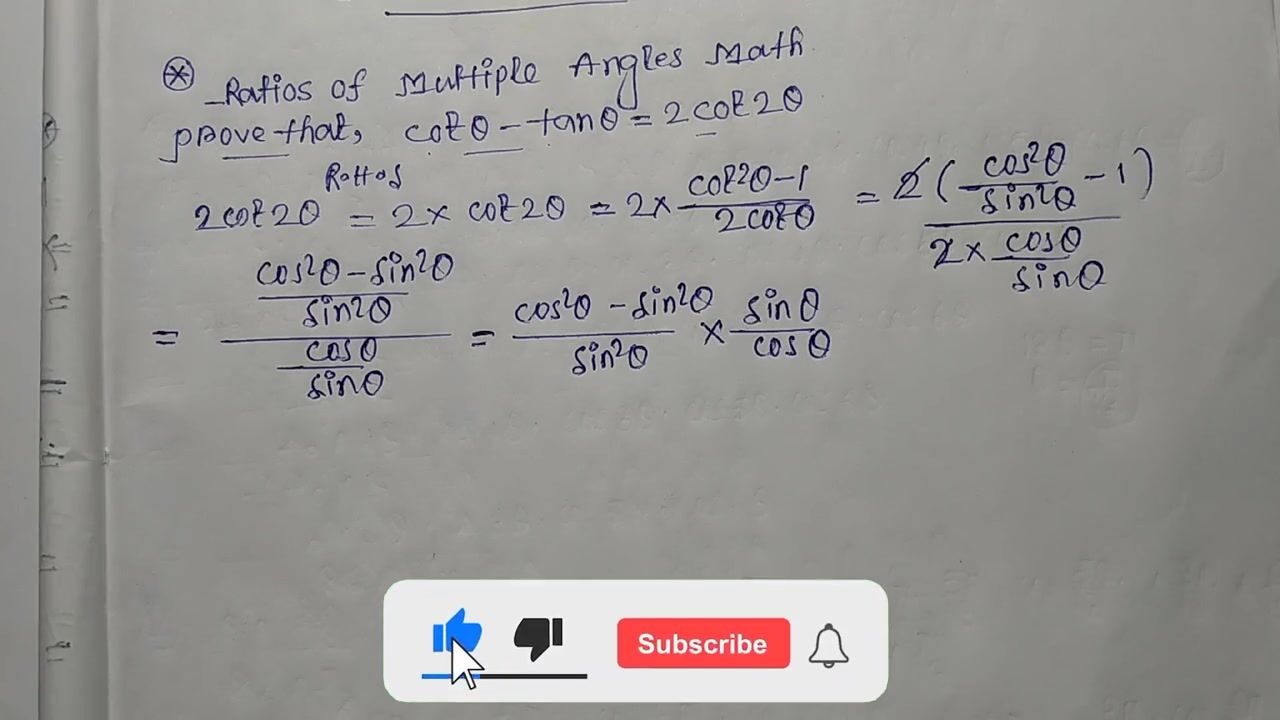 ⊛ Ratios of Multiple Angles Math
prove that, cotθ - tanθ = 2cot2θ
Rattos
2cot2θ = 2 × cot2θ = 2 × (cot²θ - 1)/(2cotθ) = 2(cos²θ/sin²θ - 1)/(2 × cosθ/sinθ)
= ((cos²θ - sin²θ)/sin²θ)/(cosθ/sinθ) = (cos²θ - sin²θ)/sin²θ × sinθ/cosθ
Subscribe